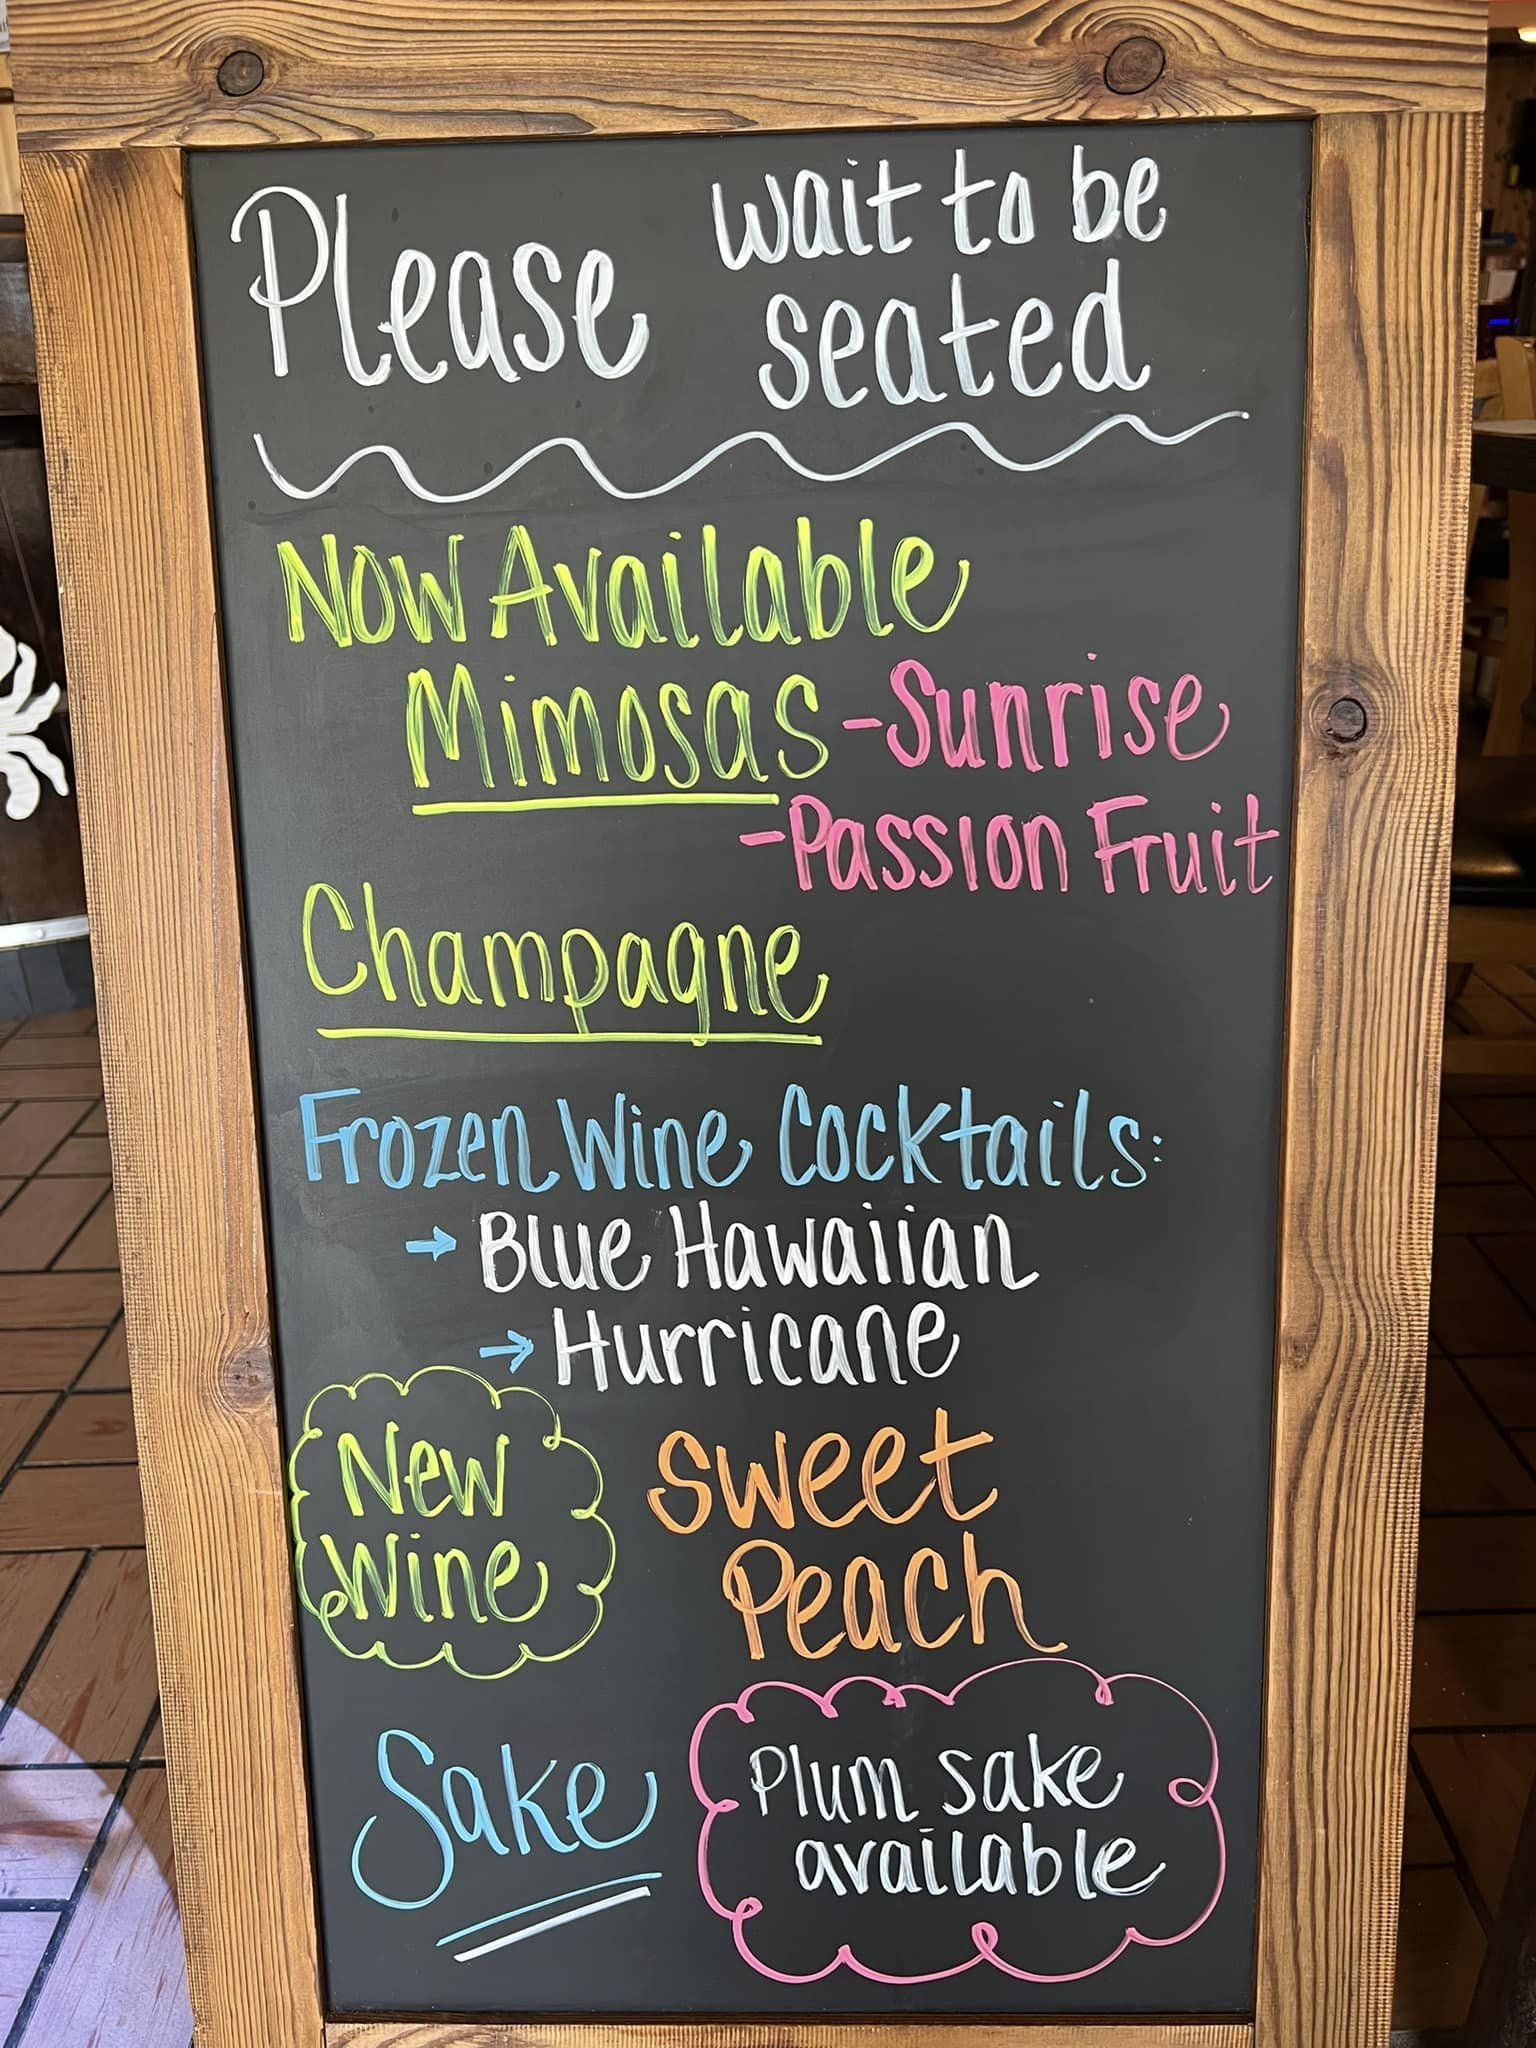 Please wait to be
seated
Now Available
Mimosas -Sunrise
-Passion Fruit
Champagne
Frozen Wine Cocktails:
→ Blue Hawaiian
→ Hurricane
New
Wine
Sweet
Peach
Sake
Plum sake
available